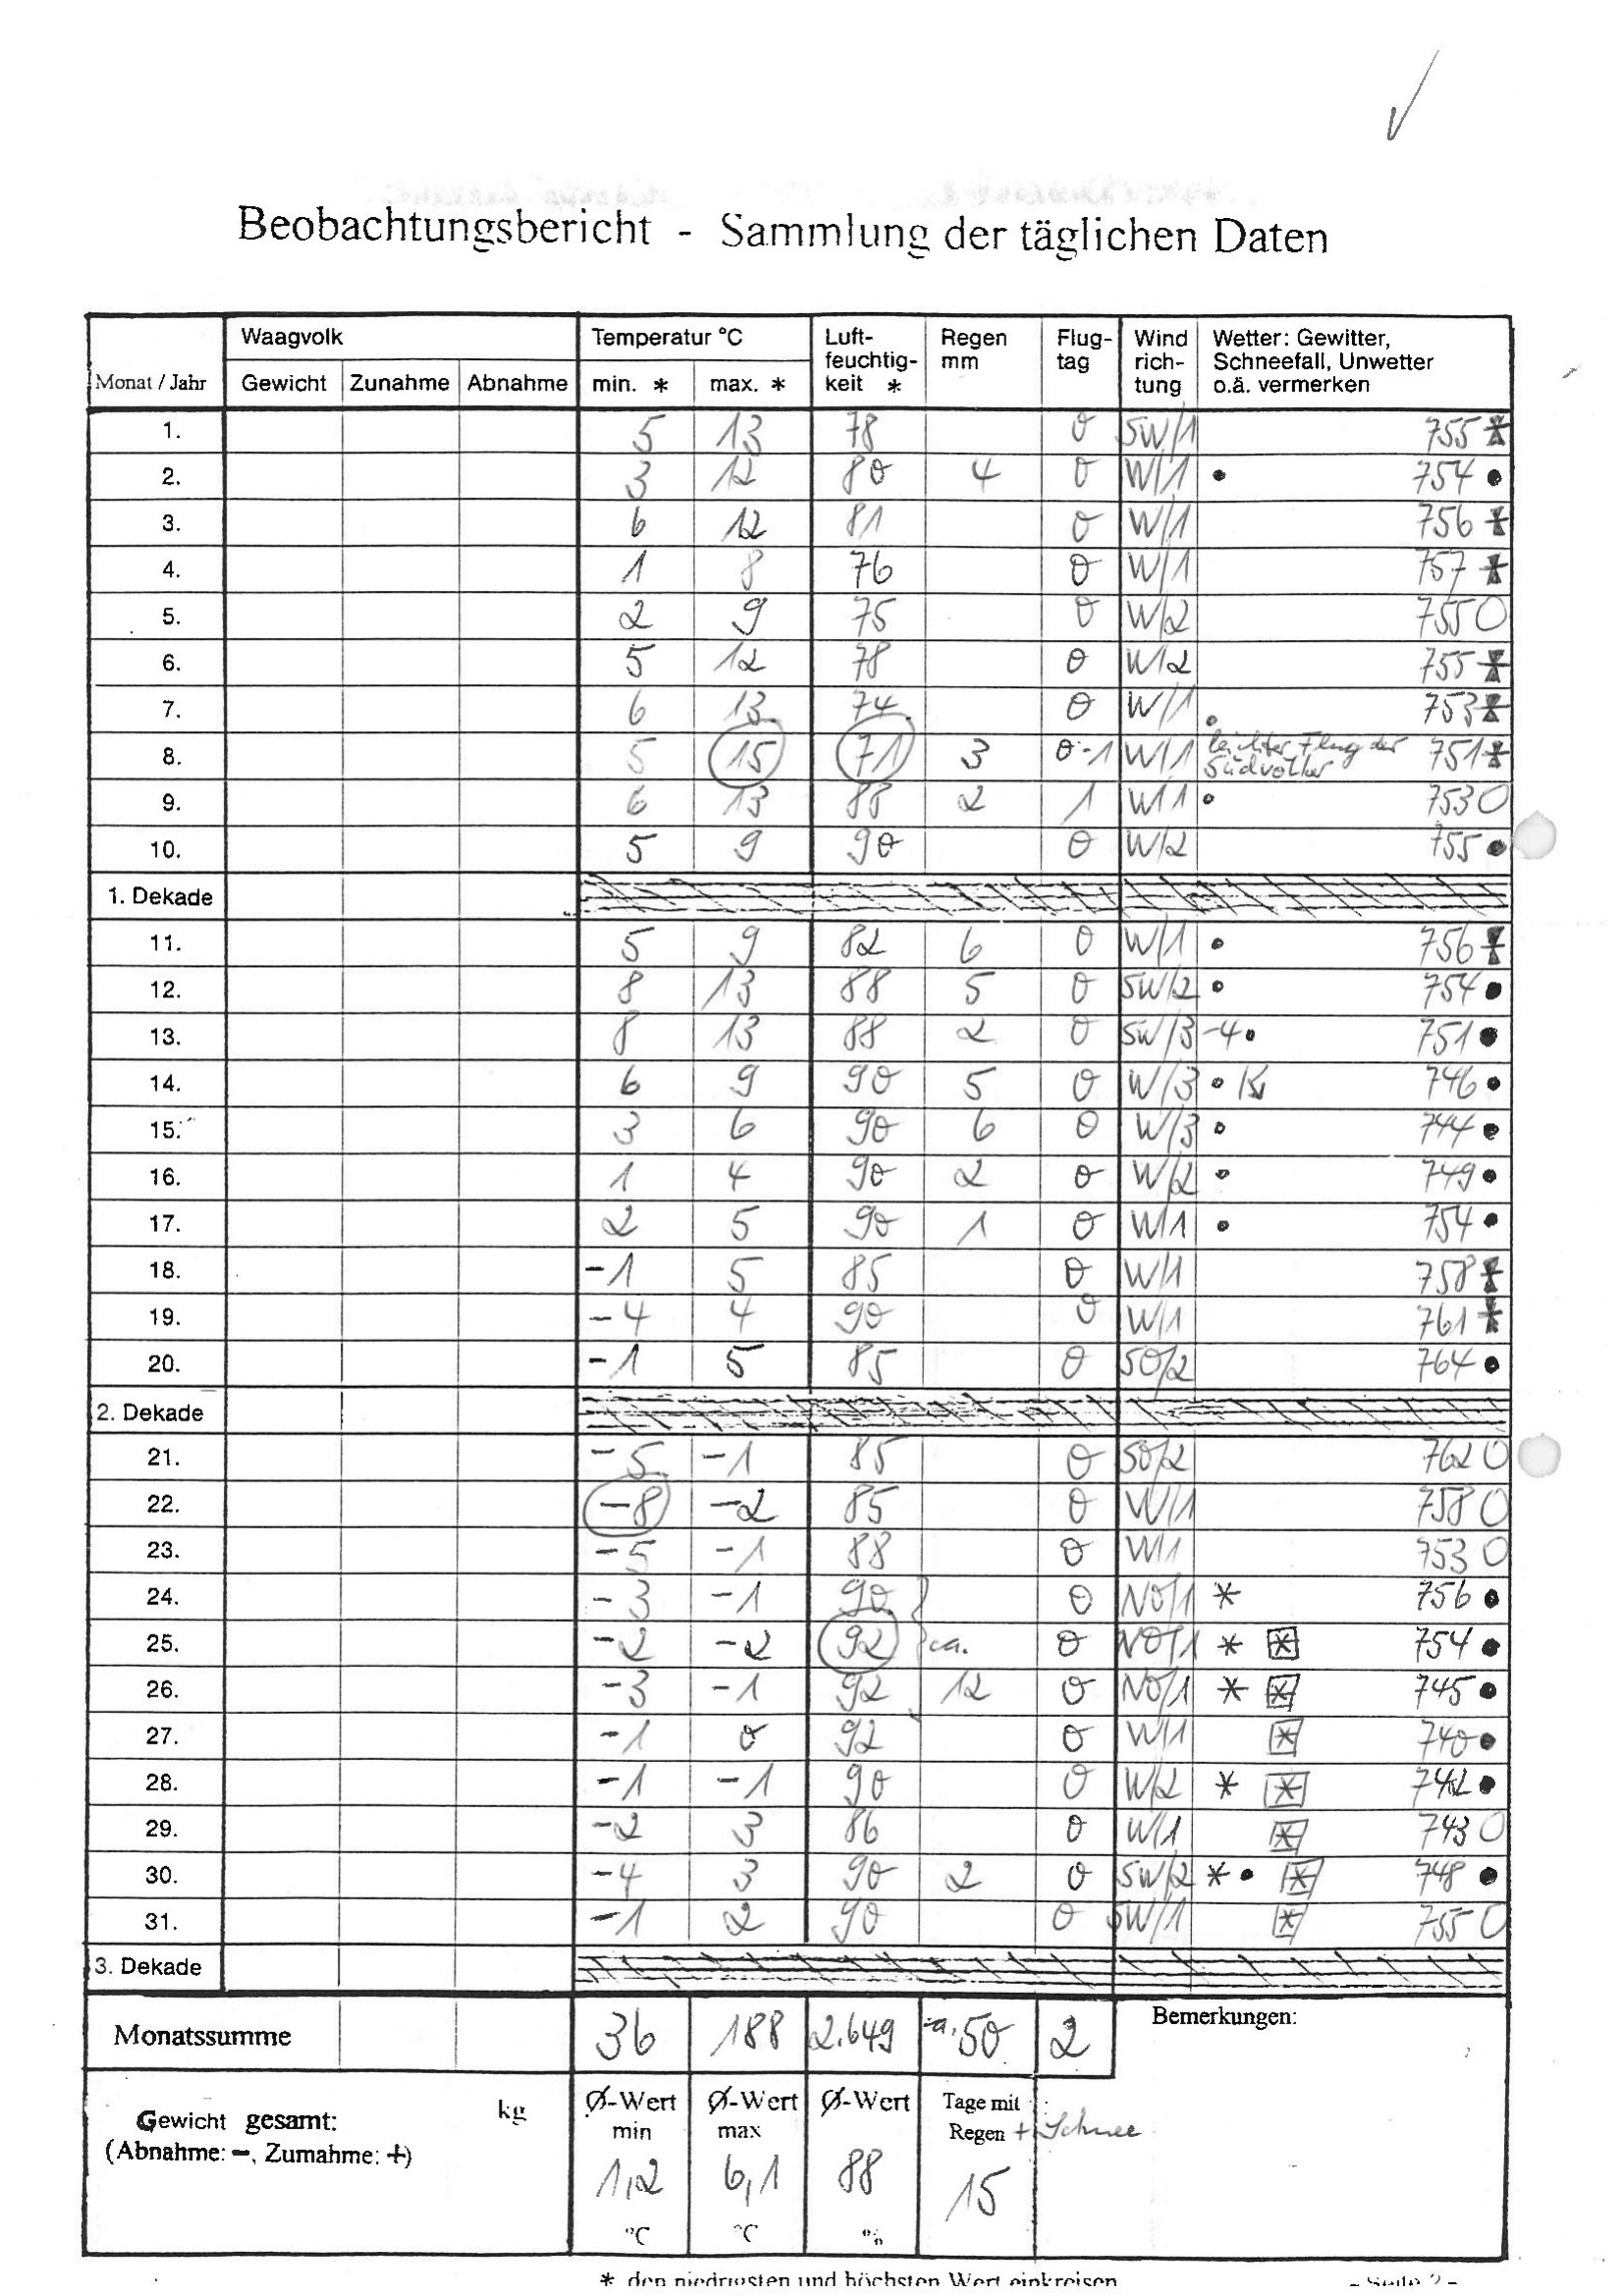 Beobachtungsbericht - Sammlung der täglichen Daten
Monat / Jahr Waagvolk Temperatur °C Luft-feuchtig-keit * Regen mm Flug-tag Wind rich-tung Wetter: Gewitter, Schneefall, Unwetter o.ä. vermerken
Gewicht Zunahme Abnahme min. * max. *
1. 5 13 78 0 SW/1 755
2. 3 12 80 4 0 W/1 • 754 •
3. 6 12 81 0 W/1 756
4. 1 8 76 0 W/1 757
5. 2 9 75 0 W/2 755 O
6. 5 12 78 0 W/2 755
7. 6 13 74 0 W/1 753
8. 5 15 71 3 0-1 W/1 • leichter Flug der Südvölker 751
9. 6 13 88 2 1 W/1 • 753 O
10. 5 9 90 0 W/2 755 •
1. Dekade
11. 5 9 82 6 0 W/1 • 756
12. 8 13 88 5 0 SW/2 • 754 •
13. 8 13 88 2 0 SW/3 -4 • 751 •
14. 6 9 90 5 0 W/3 • 746 •
15. 3 6 90 6 0 W/3 • 744 •
16. 1 4 90 2 0 W/2 • 749 •
17. 2 5 90 1 0 W/1 • 754 •
18. -1 5 85 0 W/1 758
19. -4 4 90 0 W/1 761
20. -1 5 85 0 SO/2 764 •
2. Dekade
21. -5 -1 85 0 SO/2 762 O
22. -8 -2 85 0 W/1 758 O
23. -5 -1 88 0 W/1 753 O
24. -3 -1 90 0 NO/1 * 756 •
25. -2 -2 92 ca. 0 NO/1 * * 754 •
26. -3 -1 92 12 0 NO/1 * * 745 •
27. -1 0 92 0 W/1 * 740 •
28. -1 -1 90 0 W/2 * * 742 •
29. -2 3 86 0 W/1 * 743 O
30. -4 3 90 2 0 SW/2 * • * 748 •
31. -1 2 90 0 SW/1 * 755 O
3. Dekade
Monatssumme 36 188 2.649 ca. 50 2 Bemerkungen:
Gewicht gesamt: kg
(Abnahme: -, Zumahme: +)
Ø-Wert min Ø-Wert max Ø-Wert Tage mit Regen + Schnee
1,2 6,1 88 15
°C °C %
* den niedrigsten und höchsten Wert einkreisen - Seite 2 -